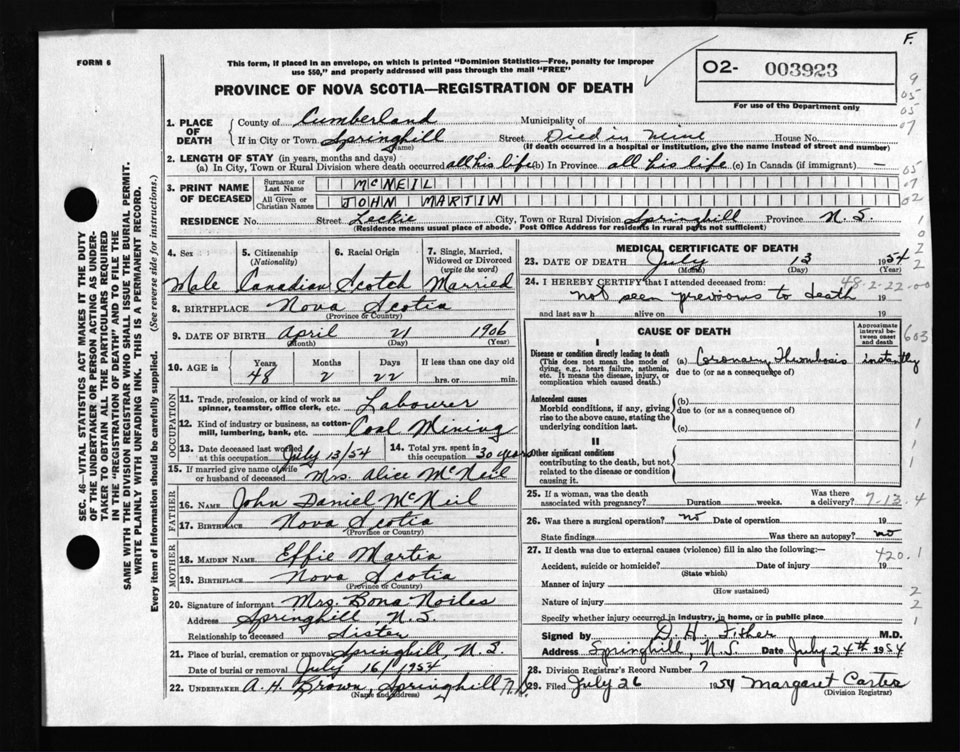 F.
FORM 6
This form, if placed in an envelope, on which is printed "Dominion Statistics—Free, penalty for improper
use $50," and properly addressed will pass through the mail "FREE"
02- 003923
For use of the Department only
PROVINCE OF NOVA SCOTIA—REGISTRATION OF DEATH
SEC. 46—VITAL STATISTICS ACT MAKES IT THE DUTY
OF THE UNDERTAKER OR PERSON ACTING AS UNDER-
TAKER TO OBTAIN ALL THE PARTICULARS REQUIRED
IN THE "REGISTRATION OF DEATH" AND TO FILE THE
SAME WITH THE DIVISION REGISTRAR WHO SHALL ISSUE THE BURIAL PERMIT.
WRITE PLAINLY WITH UNFADING INK. THIS IS A PERMANENT RECORD.
Every item of information should be carefully supplied. (See reverse side for instructions.)
1. PLACE OF DEATH
County of Cumberland Municipality of
If in City or Town Springhill Street Died in mine House No.
(Name) (If death occurred in a hospital or institution, give the name instead of street and number)
2. LENGTH OF STAY (in years, months and days)
(a) In City, Town or Rural Division where death occurred all his life (b) In Province all his life (c) In Canada (if immigrant) —
3. PRINT NAME OF DECEASED
Surname or Last Name MCNEIL
All Given or Christian Names JOHN MARTIN
RESIDENCE No. Street Leckie City, Town or Rural Division Springhill Province N.S.
(Residence means usual place of abode. Post Office Address for residents in rural parts not sufficient)
4. Sex Male
5. Citizenship (Nationality) Canadian
6. Racial Origin Scotch
7. Single, Married, Widowed or Divorced (write the word) Married
8. BIRTHPLACE Nova Scotia
(Province or Country)
9. DATE OF BIRTH April 21 1906
(Month) (Day) (Year)
10. AGE in Years 48 Months 2 Days 22 If less than one day old hrs. or min.
OCCUPATION
11. Trade, profession, or kind of work as spinner, teamster, office clerk, etc. Labourer
12. Kind of industry or business, as cotton-mill, lumbering, bank, etc. Coal Mining
13. Date deceased last worked at this occupation July 13/54
14. Total yrs. spent in this occupation 30 years
15. If married give name of wife or husband of deceased Mrs. Alice McNeil
FATHER
16. NAME John Daniel McNeil
17. BIRTHPLACE Nova Scotia
(Province or Country)
MOTHER
18. MAIDEN NAME Effie Martin
19. BIRTHPLACE Nova Scotia
(Province or Country)
20. Signature of informant Mrs. Bona Noiles
Address Springhill, N.S.
Relationship to deceased Sister
21. Place of burial, cremation or removal Springhill, N.S.
Date of burial or removal July 16/1954
22. UNDERTAKER A. H. Brown, Springhill N.S.
(Name and address)
MEDICAL CERTIFICATE OF DEATH
23. DATE OF DEATH July 13 1954
(Month) (Day) (Year)
24. I HEREBY CERTIFY that I attended deceased from:
48-2-22-00
not seen previous to death 19
and last saw h alive on 19
CAUSE OF DEATH
Approximate interval between onset and death
603
I
Disease or condition directly leading to death
(This does not mean the mode of dying, e.g., heart failure, asthenia, etc. It means the disease, injury, or complication which caused death.)
(a) Coronary Thrombosis instantly
due to (or as a consequence of)
Antecedent causes
Morbid conditions, if any, giving rise to the above cause, stating the underlying condition last.
(b)
due to (or as a consequence of)
(c)
II
Other significant conditions
contributing to the death, but not related to the disease or condition causing it.
25. If a woman, was the death associated with pregnancy? Duration weeks. Was there a delivery?
7-13-4
26. Was there a surgical operation? no Date of operation 19
State findings Was there an autopsy? no
27. If death was due to external causes (violence) fill in also the following:—
420.1
Accident, suicide or homicide? Date of injury 19
(State which)
Manner of injury
(How sustained)
Nature of injury
Specify whether injury occurred in industry, in home, or in public place
Signed by D. H. Fither M.D.
Address Springhill, N.S. Date July 24th 1954
28. Division Registrar's Record Number 7
29. Filed July 26 1954 Margaret Carter
(Division Registrar)